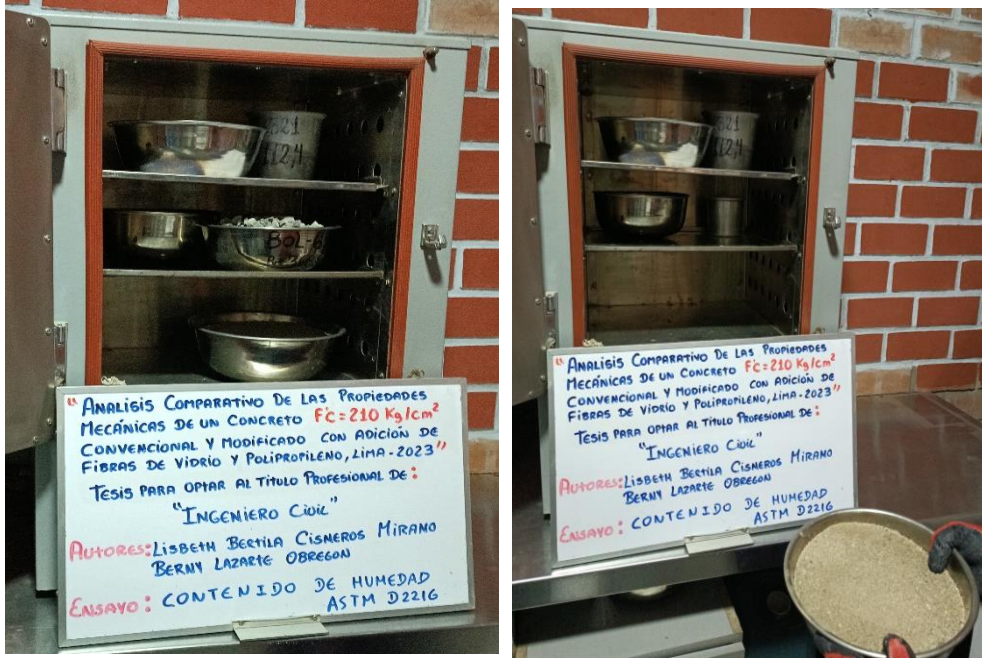 821
112,4
BOL-6
"ANALISIS COMPARATIVO DE LAS PROPIEDADES
MECÁNICAS DE UN CONCRETO F'c=210 Kg/cm²
CONVENCIONAL Y MODIFICADO CON ADICIÓN DE
FIBRAS DE VIDRIO Y POLIPROPILENO, LIMA-2023"
TESIS PARA OPTAR AL TITULO PROFESIONAL DE:
"INGENIERO CIVIL"
AUTORES: LISBETH BERTILA CISNEROS MIRANO
BERNY LAZARTE OBREGON
ENSAYO: CONTENIDO DE HUMEDAD
ASTM D2216
821
112,4
"ANALISIS COMPARATIVO DE LAS PROPIEDADES
MECÁNICAS DE UN CONCRETO F'c=210 Kg/cm²
CONVENCIONAL Y MODIFICADO CON ADICIÓN DE
FIBRAS DE VIDRIO Y POLIPROPILENO, LIMA-2023"
TESIS PARA OPTAR AL TITULO PROFESIONAL DE:
"INGENIERO CIVIL"
AUTORES: LISBETH BERTILA CISNEROS MIRANO
BERNY LAZARTE OBREGON
ENSAYO: CONTENIDO DE HUMEDAD
ASTM D2216